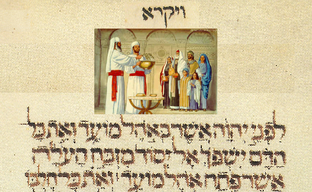 ויקרא
לפני יהוה אשר באהל מועד ואת כל
הדם ישפך אל יסוד מזבח העלה
אשר פתח אהל מועד ואת